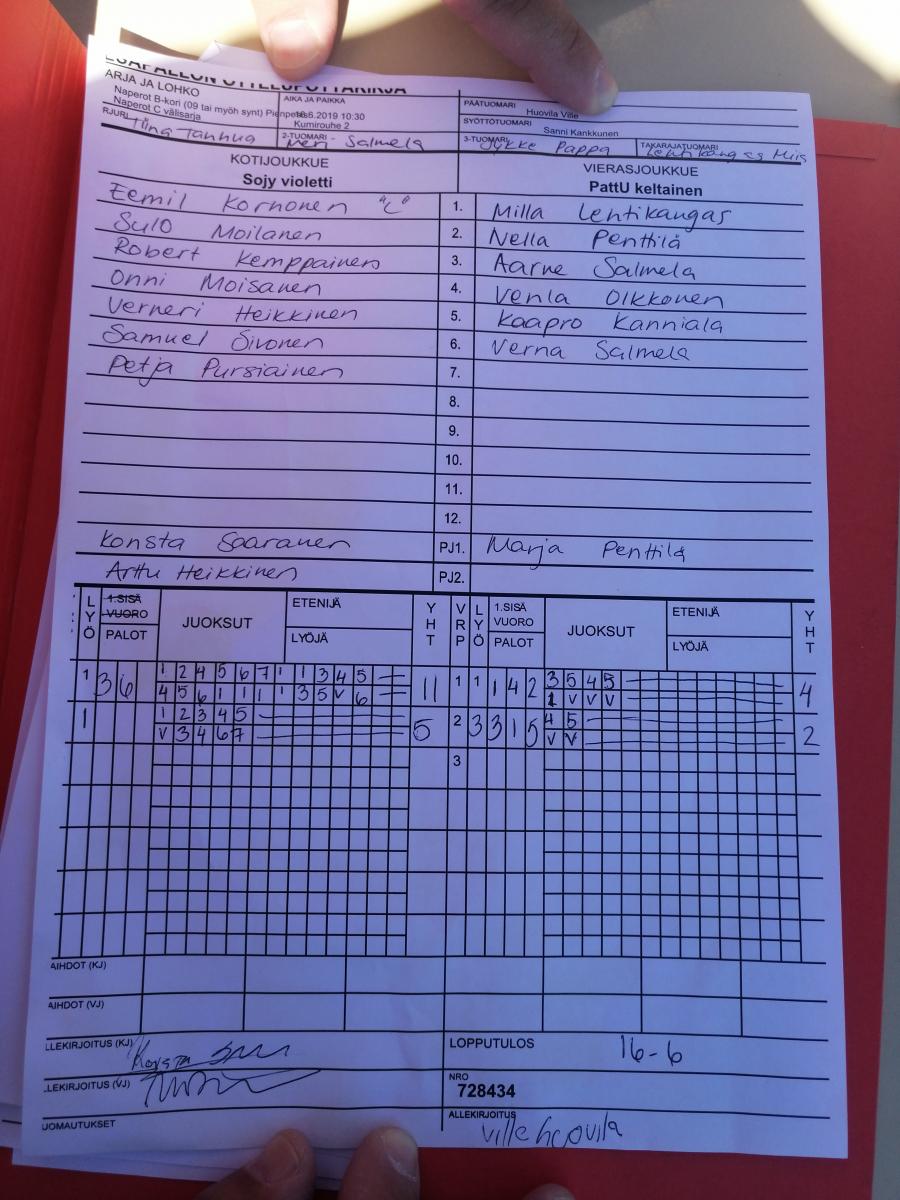 ARJA JA LOHKO
Naperot B-kori (09 tai myöh synt)
Naperot C välisarja
AIKA JA PAIKKA
6.6.2019 10:30
Kumirouhe 2
PÄÄTUOMARI
Huovila Ville
SYÖTTÖTUOMARI
Sanni Kankkunen
RJURI Tiina Tanhua
2-TUOMARI Meri Salmela
3-TUOMARI Jykke Pappa
TAKARAJATUOMARI Lehtikangas Miis
KOTIJOUKKUE
Sojy violetti
VIERASJOUKKUE
PattU keltainen
Eemil Korhonen "C" 1. Milla Lehtikangas
Sulo Moilanen 2. Nella Penttilä
Robert Kemppainen 3. Aarne Salmela
Onni Moisanen 4. Venla Olkkonen
Verneri Heikkinen 5. Kaapro Kanniala
Samuel Sivonen 6. Verna Salmela
Petja Pursiainen 7.
8.
9.
10.
11.
12.
Konsta Saaranen PJ1. Marja Penttilä
Arttu Heikkinen PJ2.
LYÖ 1.SISÄ VUORO PALOT JUOKSUT ETENIJÄ LYÖJÄ YHT VRP LYÖ 1.SISÄ VUORO PALOT JUOKSUT ETENIJÄ LYÖJÄ YHT
1 3 6 1 2 4 5 6 7 1 1 3 4 5 11 1 1 1 4 2 3 5 4 5 4
4 5 6 1 1 1 1 3 5 V 6 1 V V V
1 1 2 3 4 5 5 2 3 3 1 5 4 5 2
V 3 4 6 7 V V
3
AIHDOT (KJ)
AIHDOT (VJ)
LLEKIRJOITUS (KJ) Konsta
LOPPUTULOS 16-6
LEKIRJOITUS (VJ)
NRO
728434
UOMAUTUKSET
ALLEKIRJOITUS
Ville Huovila